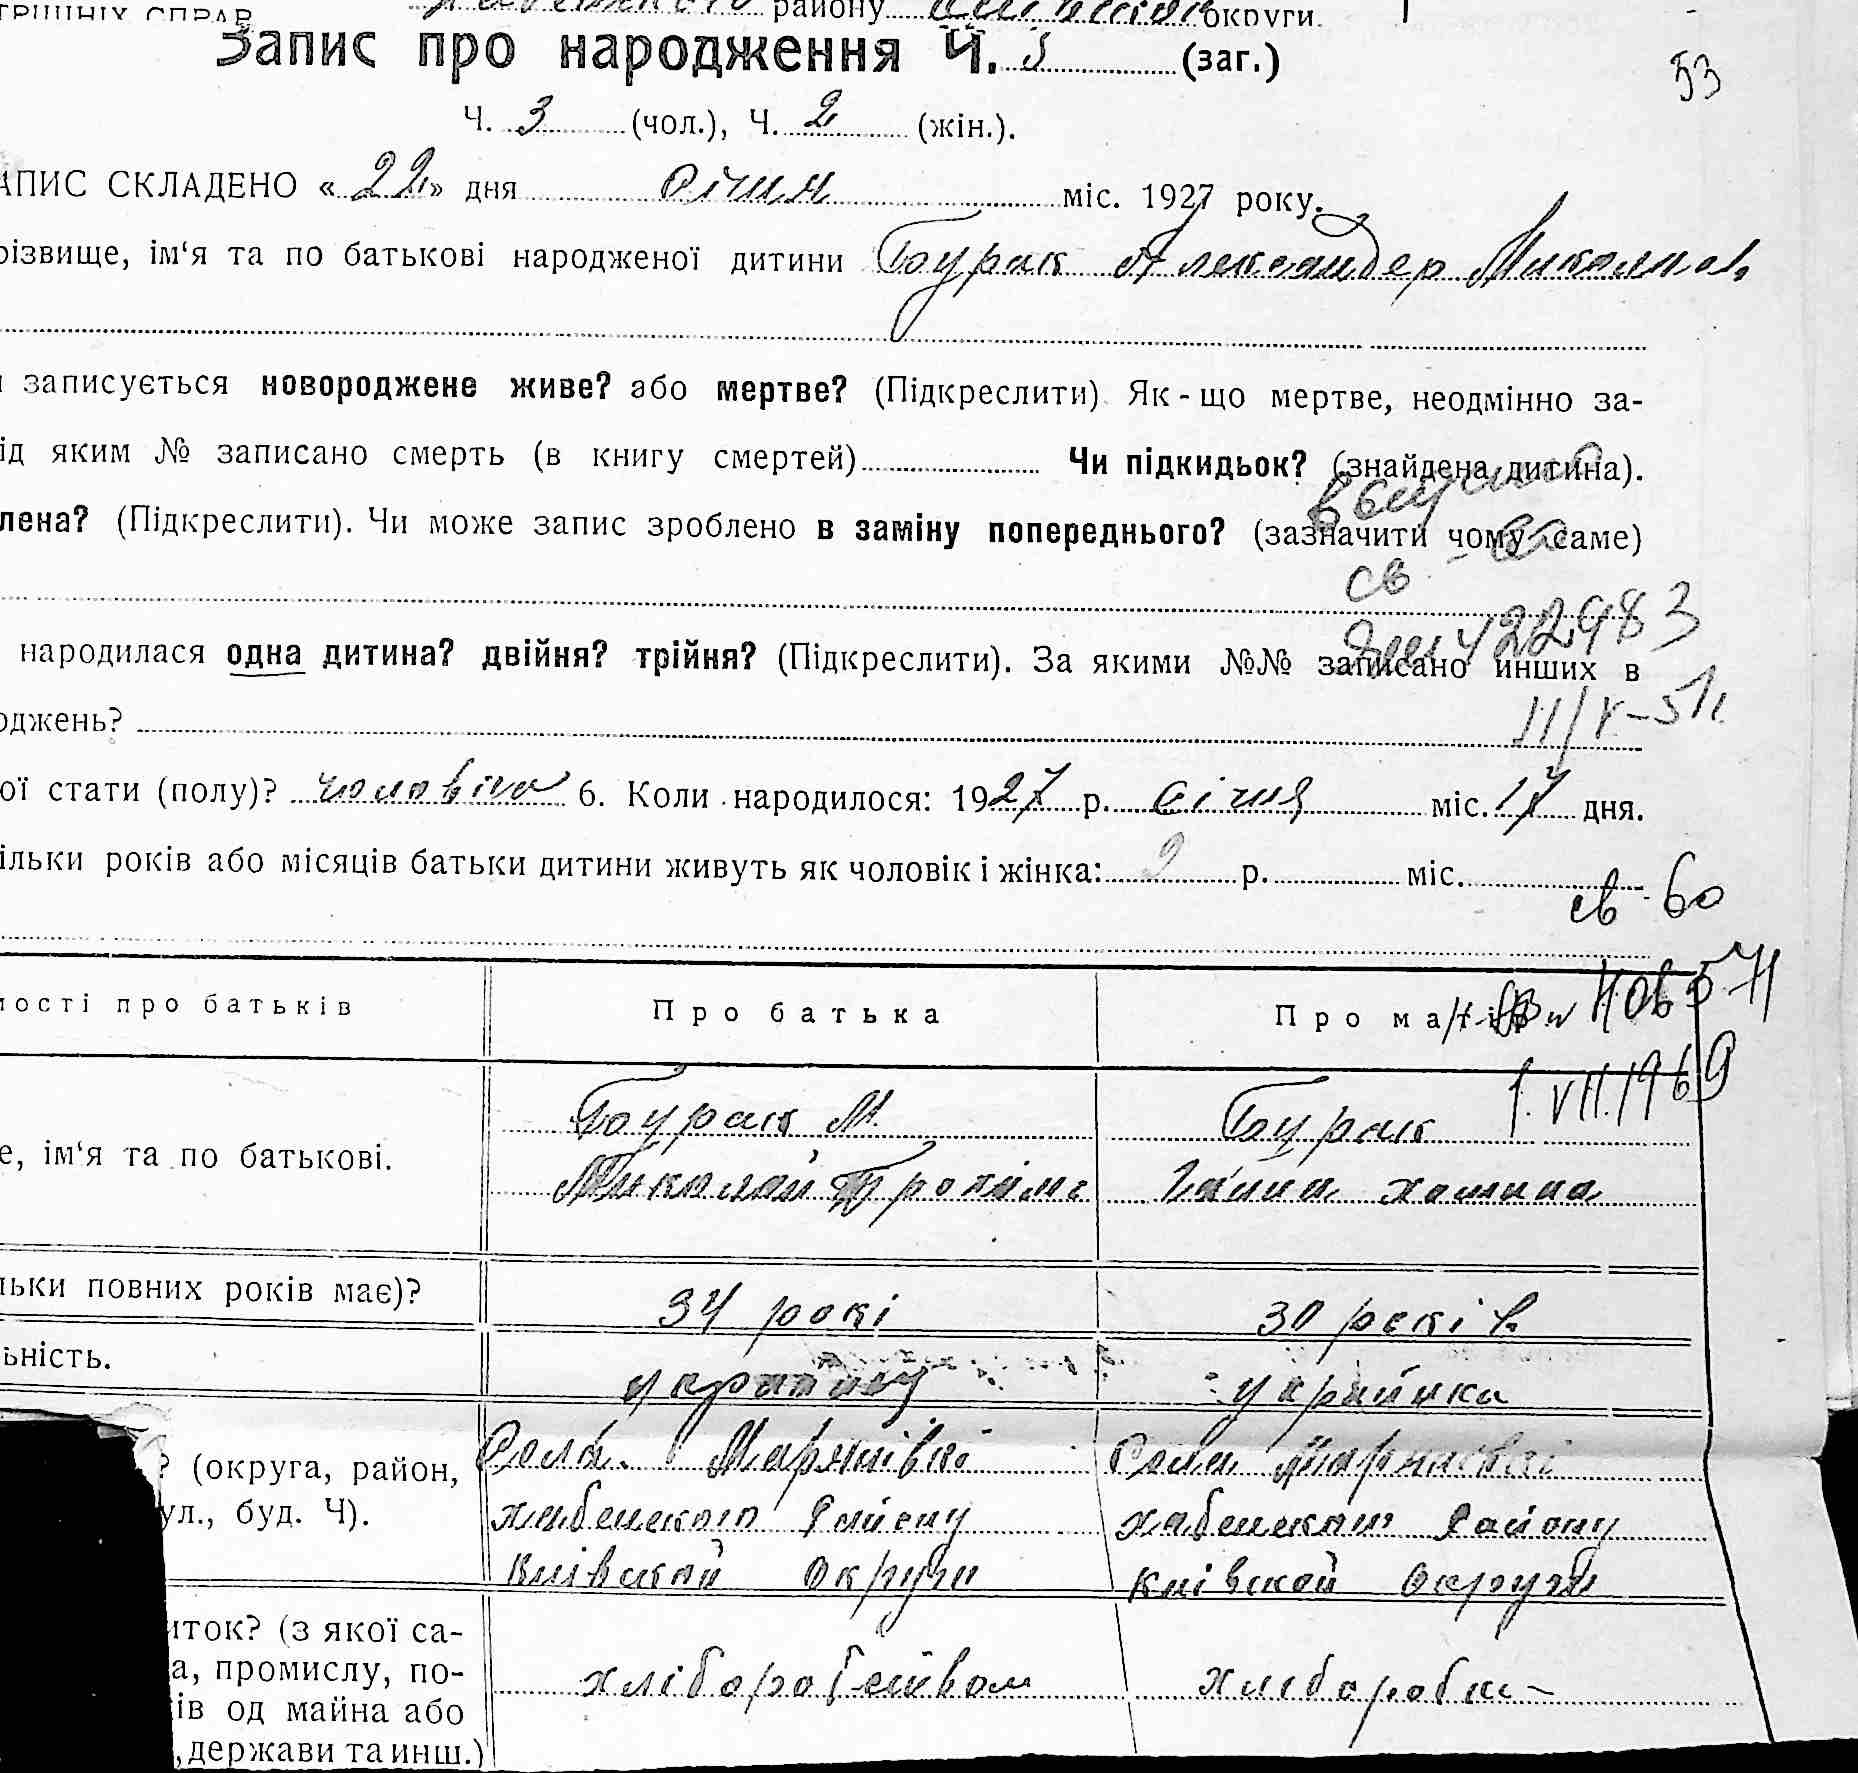 району округи.
Запис про народження Ч. 5 (заг.)
53
Ч. 3 (чол.), Ч. 2 (жін.).
АПИС СКЛАДЕНО « 22 » дня січня міс. 1927 року.
різвище, ім‘я та по батькові народженої дитини Бурак Александер Миколаів
записується новороджене живе? або мертве? (Підкреслити). Як - що мертве, неодмінно за-
ід яким № записано смерть (в книгу смертей) Чи підкидьок? (знайдена дитина).
лена? (Підкреслити). Чи може запис зроблено в заміну попереднього? (зазначити чому саме)
св
422983
народилася одна дитина? двійня? трійня? (Підкреслити). За якими №№ записано инших в
11/V-51г.
оджень?
ої стати (полу)? 6. Коли народилося: 1927 р. січня міс. 17 дня.
ільки років або місяців батьки дитини живуть як чоловік і жінка: 9 р. міс.
св-во
мості про батьків Про батька Про матір
1.VII.1969
Бурак М. Бурак
е, ім‘я та по батькові. Миколай Трохимо Ганна хомина
льки повних років має)? 34 рокі 30 років
ьність. українец українка
Села Мар'янівкі Села Мар'янівкі
? (округа, район, хабенского Району хабенского Району
ул., буд. Ч). Київской Округи Київской Округи
иток? (з якої са-
а, промислу, по- хліборобством хліборобка
ів од майна або
, держави та инш.)